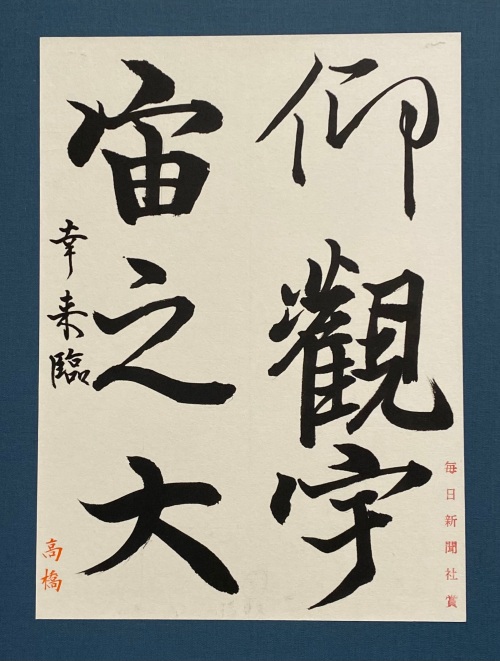 仰觀宇
宙之大
幸来臨
高橋
毎日新聞社賞